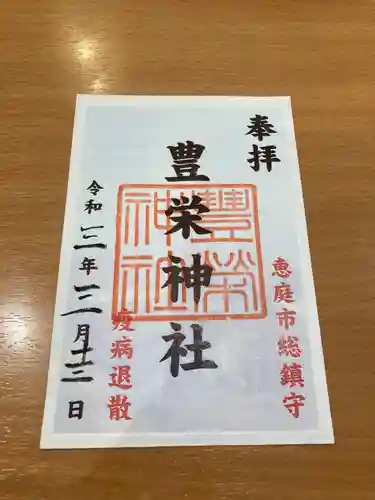 奉拝
恵庭市総鎮守
豊栄神社
豐榮神社
疫病退散
令和三年三月十三日